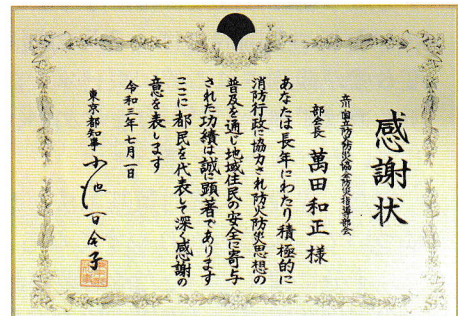 感謝状
立川国立防火防災協会防災指導部会
部会長 萬田和正様
あなたは長年にわたり積極的に
消防行政に協力され防火防災思想の
普及を通じ地域住民の安全に寄与
された功績は誠に顕著であります
ここに都民を代表して深く感謝の
意を表します
令和三年七月一日
東京都知事 小池百合子